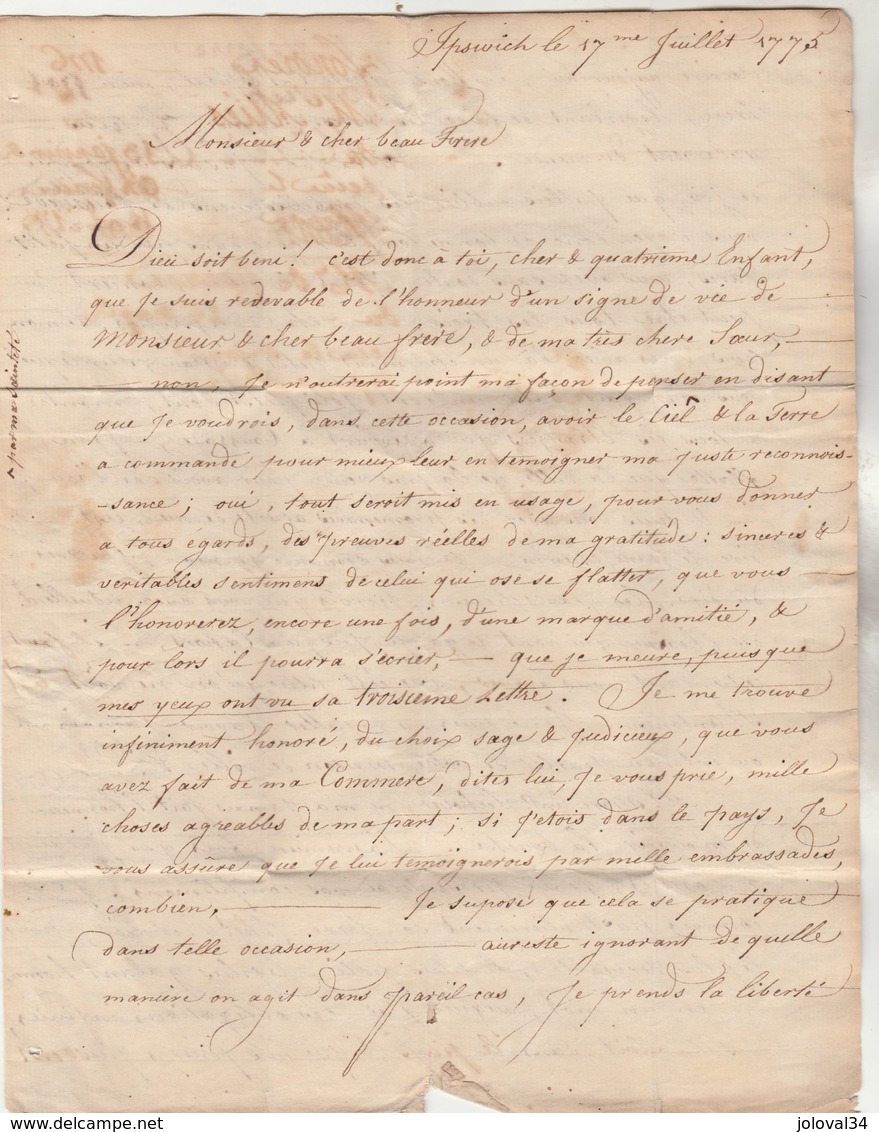 Ipswich le 17me Juillet 1775
Monsieur & cher beau Frere
Dieu soit beni! c'est donc à toi, cher & quatrieme Enfant,
que Je suis redevable de l'honneur d'un signe de vie de —
Monsieur & cher beau frere, & de ma très chere Sœur, —
— non, Je n'outrerai point ma façon de penser en disant
que Je voudrois, dans cette occasion, avoir le Ciel ^ & la Terre
a commande pour mieux leur en temoigner ma juste reconnois-
-sance; oui, tout seroit mis en usage, pour vous donner
a tous égards, des preuves réelles de ma gratitude: sinceres &
veritables sentimens de celui qui ose se flatter, que vous —
l'honorerez, encore une fois, d'une marque d'amitié, &
pour lors il pourra s'écrier, — que je meure, puis que
mes yeux ont vu sa troisieme Lettre. Je me trouve
infiniment honoré, du choix sage & judicieux, que vous
avez fait de ma Commere, dites lui, Je vous prie, mille
choses agreables de ma part; si j'etois dans le pays, Je
vous assûre que Je lui temoignerois par mille embrassades,
combien, — Je supose que cela se pratique
dans telle occasion, — au reste ignorant de quelle
maniere on agit dans pareil cas, Je prends la liberté
^ par ma sainteté
joloval34